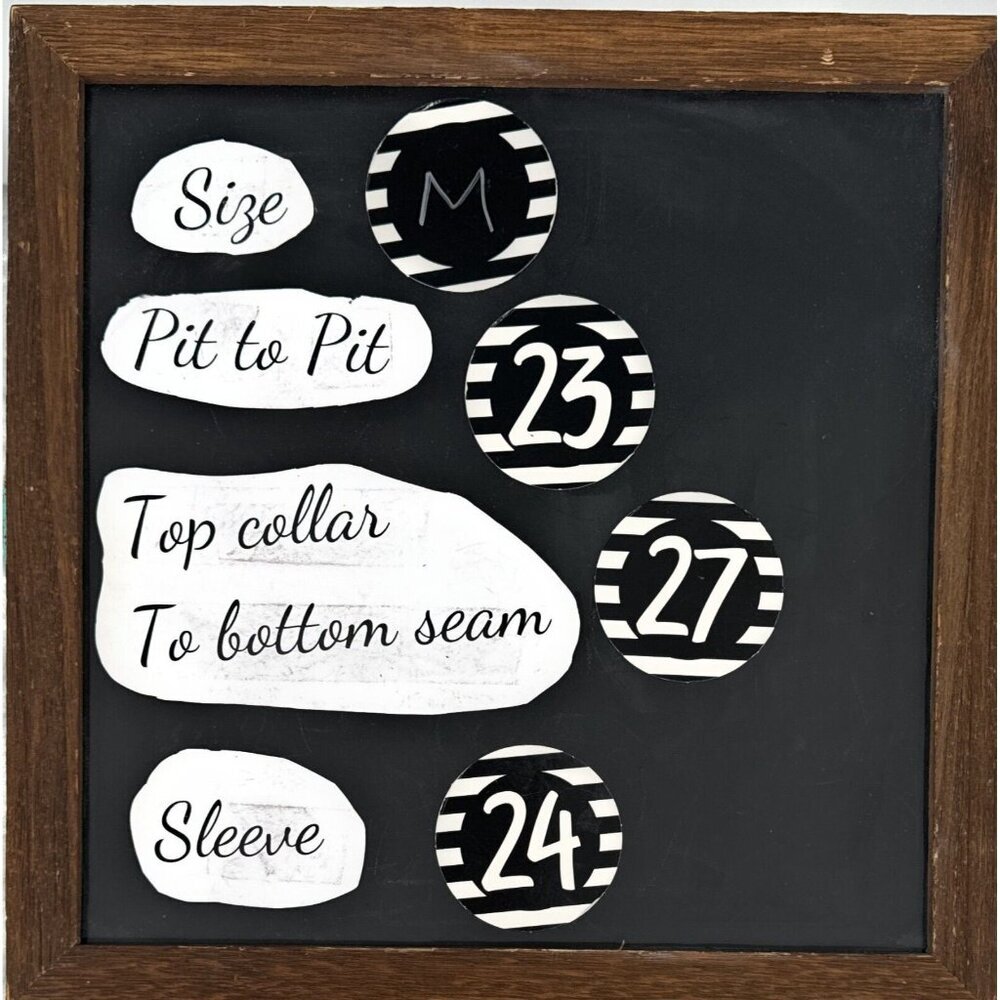 Size M
Pit to Pit 23
Top collar
To bottom seam 27
Sleeve 24